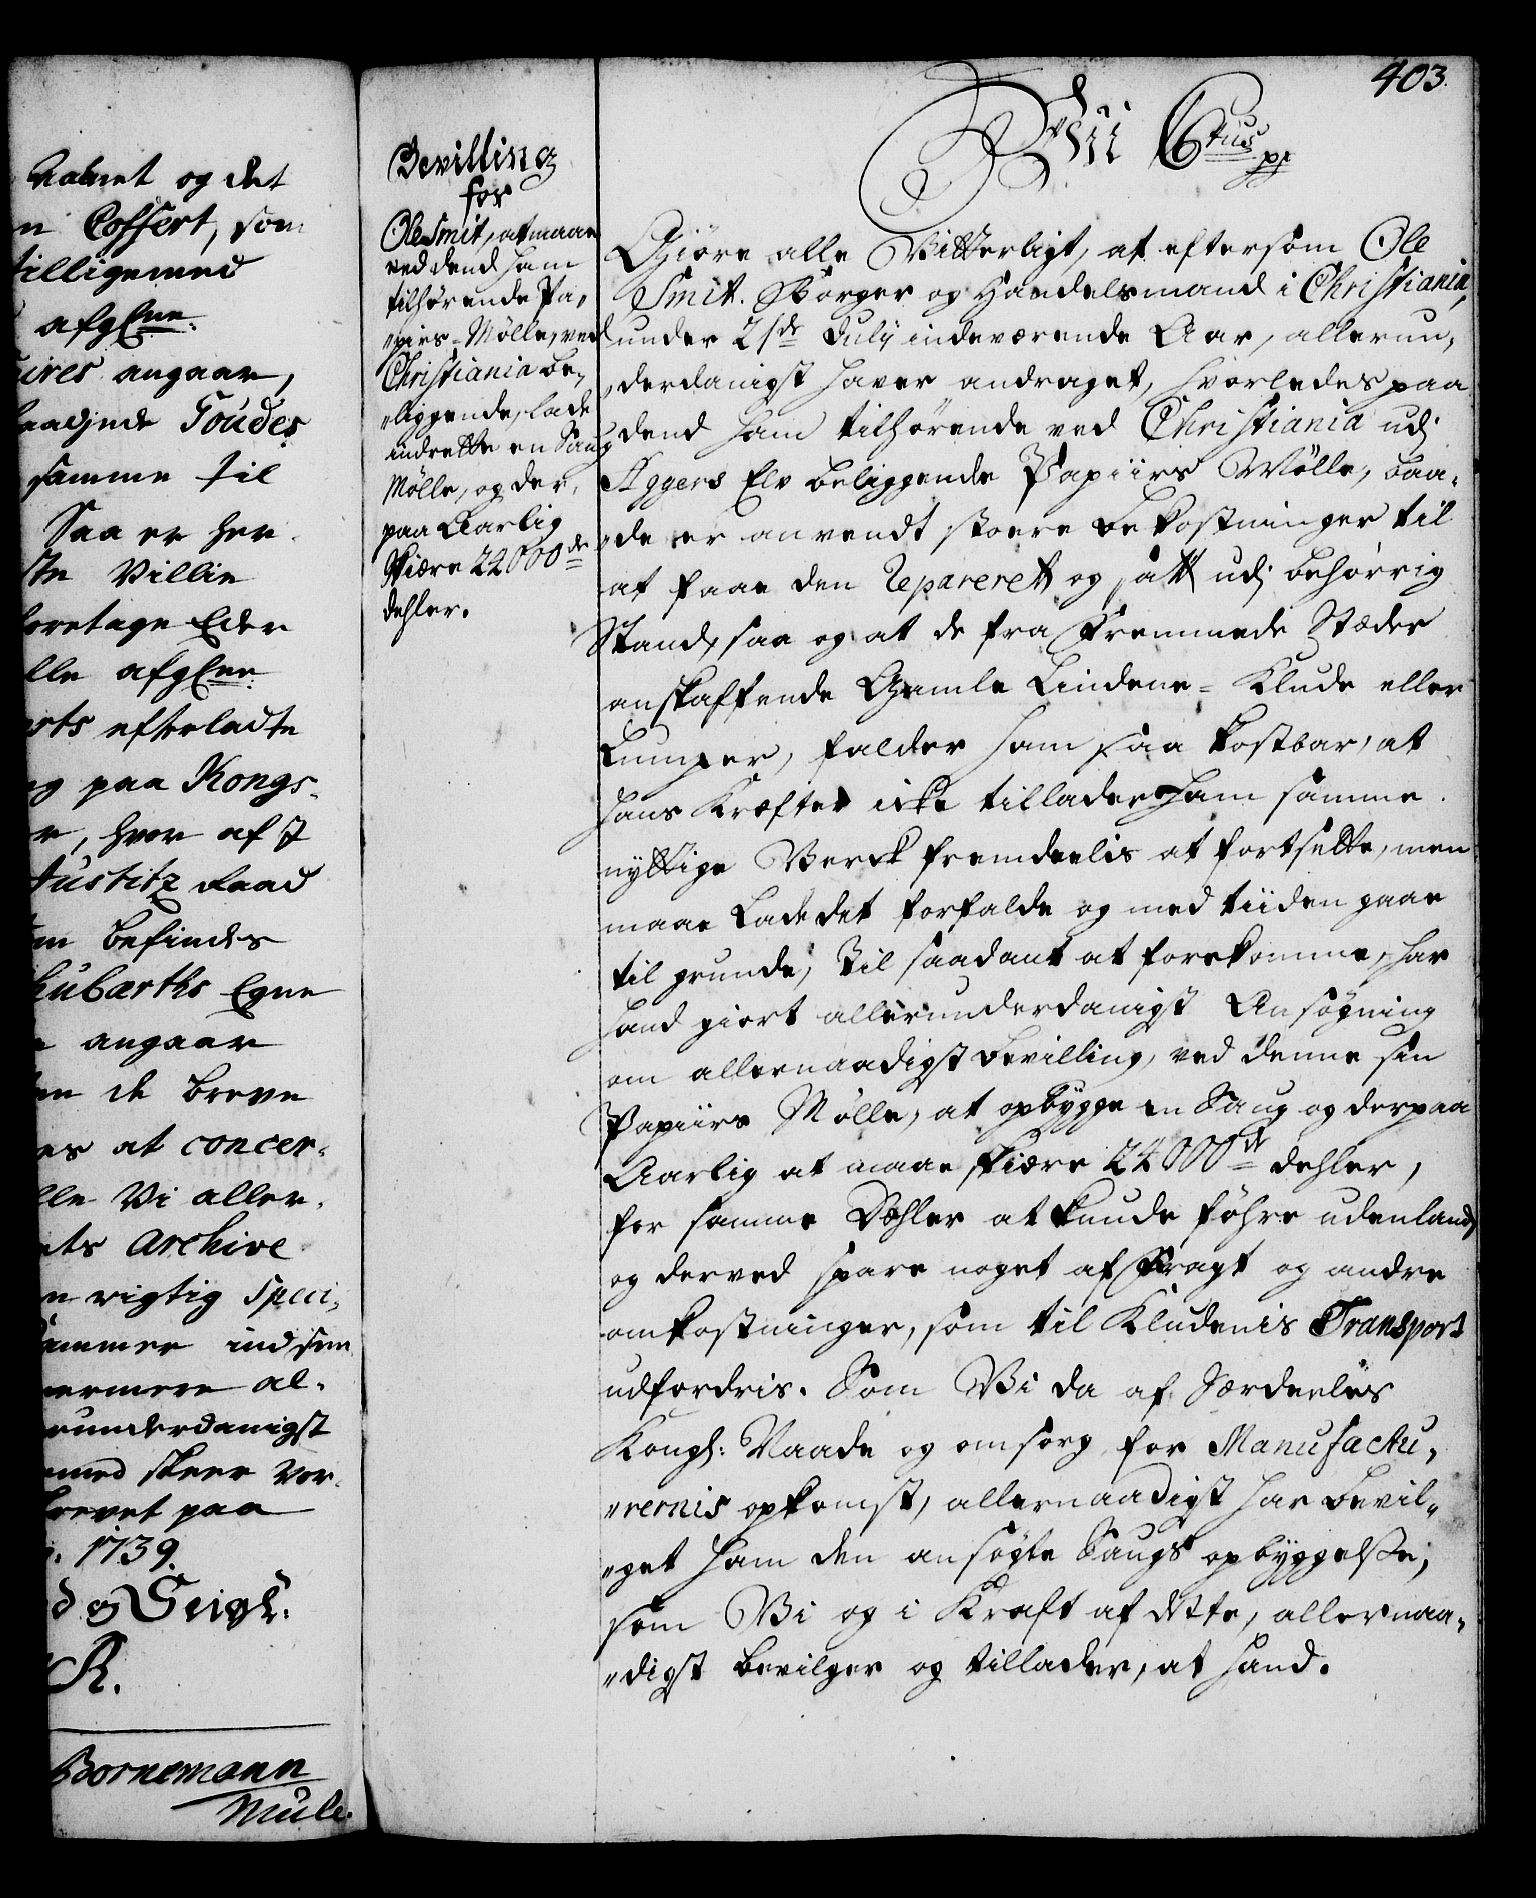 403.
Cabinet og det
n Coffert, som
tilligemed
afgEne.
ires angaar,
Toudes
samme til
Saa er her
ste Villie
foretage Eder
lle afgEne
rts efterladte
og paa Kongs-
r, hvor af I
Justitz Raad
m befindes
hubærths Egne
angaar
en de breve
es at concer-
lle Vi aller-
ets Archive
n rigtig Speci-
ummer indsen
nermere al-
erunderdanigst
med skeer vor
brevet paa
1739.
R.
Bornemann
Mule.
Bevilling
for
Ole Smit, at maae
ved dend ham
tilhørende Pa,,
,,pirs-Mølle, ved
Christiania be,,
,,liggende, lade
indrette en Saug
Mølle, og der,,
paa Aarlig
Skiære 22000de
dehler.
Vii C6tus pp
Giøre alle Vitterligt, at eftersom Ole
Smit. Borger og Handelsmand i Christiania,
under 21de July indeværende Aar, allerun,,
,,derdanigst haver andraget, hvorledes paa
dend ham tilhørende ved Christiania udj
Aggers Elv beliggende Papiirs Mølle, baa,,
,,de er anvendt stoere bekostninger til
at faae den Repareret og satt udj behørrig
Stand, saa og at de fra Fremmede Stæder
anskaffende Gamle Lindene-Klude eller
Lumper, falder ham saa kostbar, at
hans Kræfter icke tillader ham samme
nyttige Verck fremdeelis at fortsette, men
maae Lade det forfalde og med tiiden gaae
til grunde, Til saadant at forekomme, har
hand giort allerunderdanigst Ansøgning
om allernaadigst bevilling, ved denne sin
Papiirs Mølle, at opbygge en Saug og derpaa
Aarlig at maae skiære 22000de dehler,
for samme Dehler at kunde føhre udenlands
og derved spare noget af Fragt og andre
omkostninger, som til Kludenis Transport
udfordris. Som Vi da af Særdeelis
Kongl: Naade og omsorg for Manufactu,,
,,rernis opkomst, allernaadigst har bevil,,
,,get ham den ansøgte Saugs opbyggelse,
som Vi og i Kraft af dette, allernaa,,
,,digst bevilger og tillader, at hand.